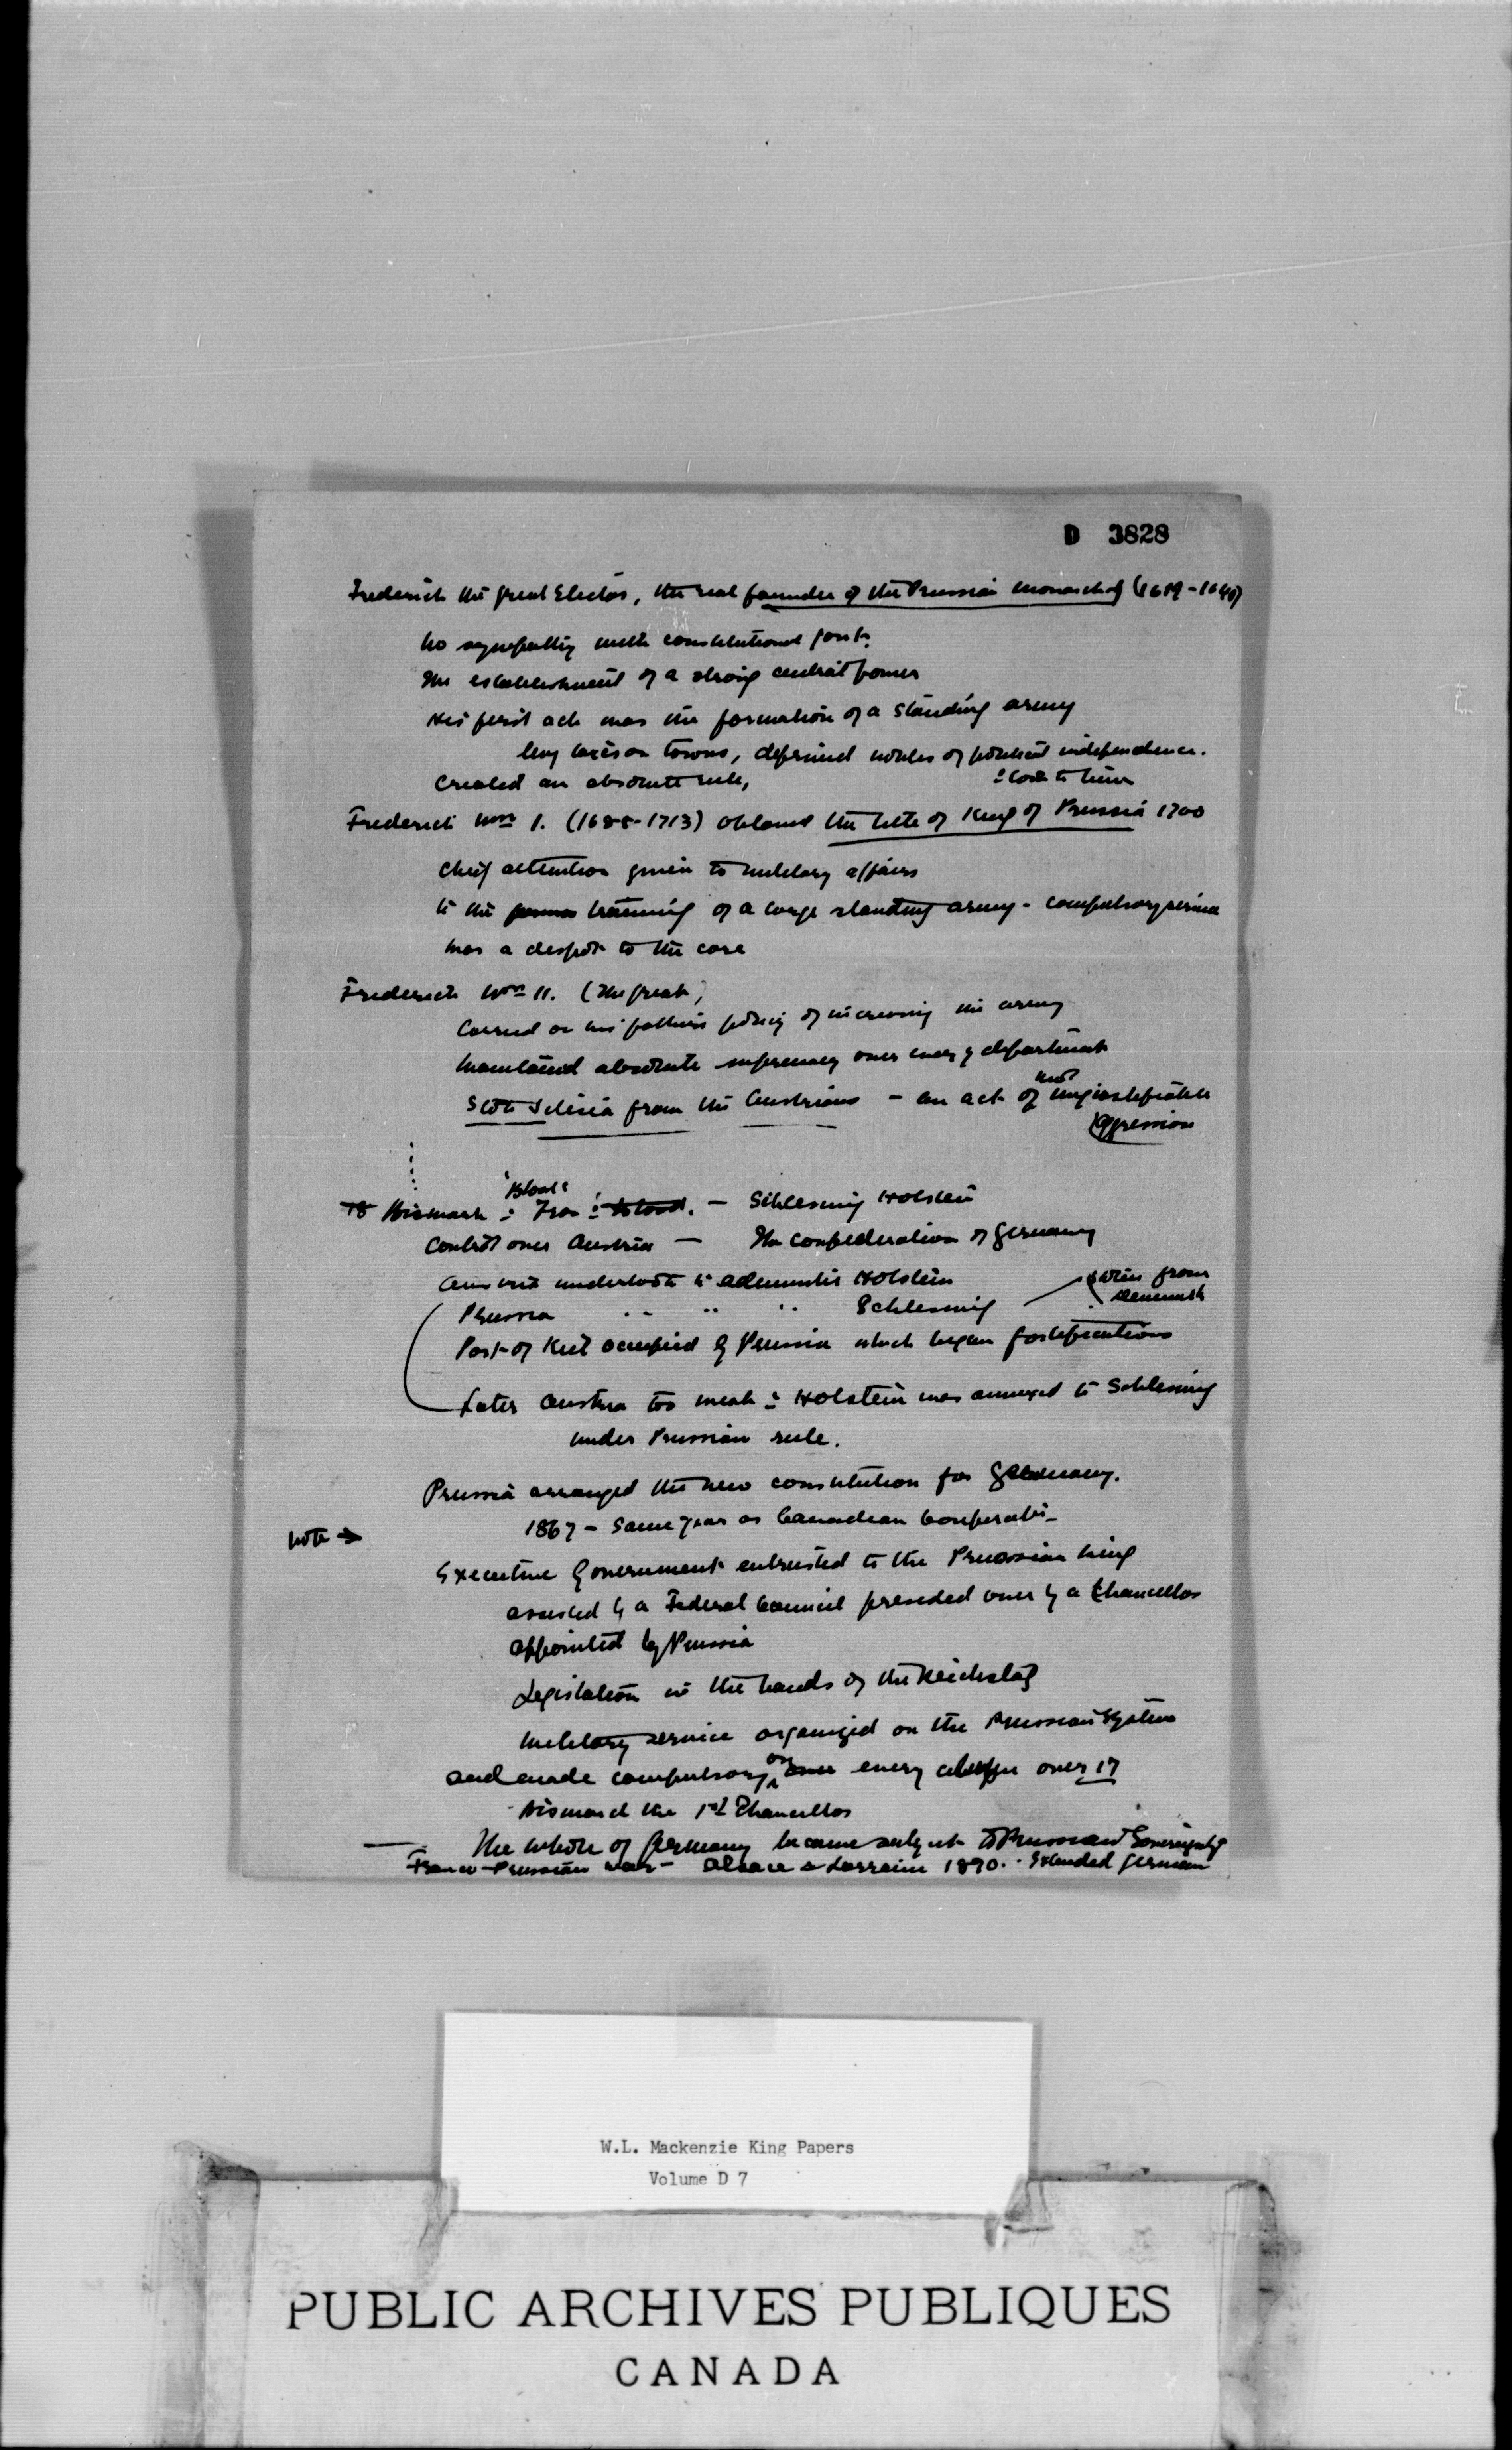 D 3828
Frederick the great Elector, the real founder of the Prussian monarchy (1619-1640)
no sympathy with constitutional govt.
The establishment of a strong central power
His first act was the formation of a standing army
levy taxes on towns, deprived nobles of political independence.
created an absolute rule,
Frederick Wm I. (1688-1713) obtained the title of King of Prussia 1700
Chief attention given to military affairs
to the training of a large standing army - compulsory service
was a despot to the core
Frederick Wm II. (The great)
Carried on his father's policy of increasing the army
Maintained absolute supremacy over every department
Stole Silesia from the Austrians - an act of most unjustifiable
aggression
To Bismark : 'Blood & Iron & blood. - Schleswig Holstein
Control over Austria - The confederation of Germany
Austria undertook to administer Holstein
Prussia " " " Schleswig taken from
Denmark
Port of Kiel occupied by Prussia which began fortifications
Later Austria too weak & Holstein was annexed to Schleswig
under Prussian rule.
Prussia arranged the new constitution for Germany.
note → 1867 - same year as Canadian Confederatn
Executive Government entrusted to the Prussian King
assisted by a Federal Council presided over by a Chancellor
appointed by Prussia
Legislation in the hands of the Reichstag
Military service organized on the Prussian System
and made compulsory on every citizen over 17
Bismarck the 1st Chancellor
— The whole of Germany became subject to Prussian Sovereignty
Franco-Prussian war - Alsace & Lorraine 1870. - Extended German
W.L. Mackenzie King Papers
Volume D 7
PUBLIC ARCHIVES PUBLIQUES
CANADA